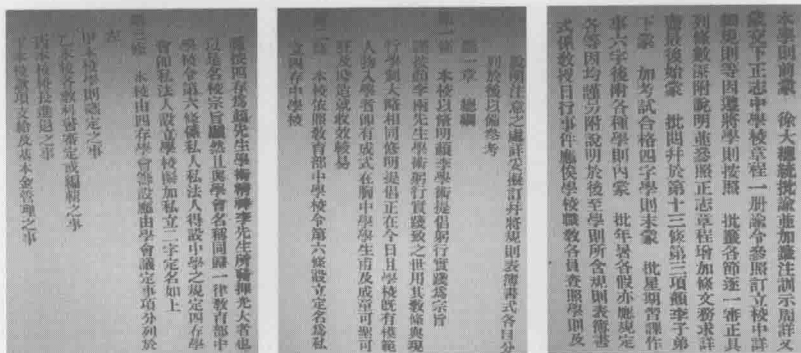 本學則前蒙　徐大總統批諭並加籤注訓示周詳又
蒙交下正志中學校章程一册諭令參照訂立校中詳
細規則等因遵將學則按照　批籤各節逐一審正其
列條數添附說明並參照正志章程增加條文務求詳
備最後始蒙　批閱幷於第十三條第三項顏李子弟
下蒙　加考試合格四字學則末蒙　批星期習課作
事六字後附各種學則內蒙　批年暑各假亦應規定
各等因均謹另附說明於後至學則所含規則表簿書
式係教授日行事件應俟學校職教各員查照學則及
說明注意之處詳公擬訂幷將規則表簿書式各目分
列於後以備參考
第一章　總綱
第一條　本校以修明顏李學術提倡躬行實踐為宗旨
謹按顏李兩先生學術躬行實踐致之世用其教條與現
行學制大略相同修明提倡正在今日且學校既有模範
人物入學者即有成式在胸中學學生甫及成童可聖可
賢及時造就收效較易
第二條　本校依照教育部中學校令第六條設立定名爲私
立四存中學校
謹按四存爲顏先生學術精神李先生所發揮光大者也
以是名校宗旨顯然且與學會名稱同歸一律教育部中
學校令第六條儀私人私法人得設中學之規定四存學
會即私法人設立學校擬加私立二字定名如上
第三條　本校由四存學會籌設應由學會議定事項分列於
左
甲本校學則議定之事
乙本校各教科書審定或編輯之事
丙本校校長進退之事
丁本校款項支給及基本金管理之事